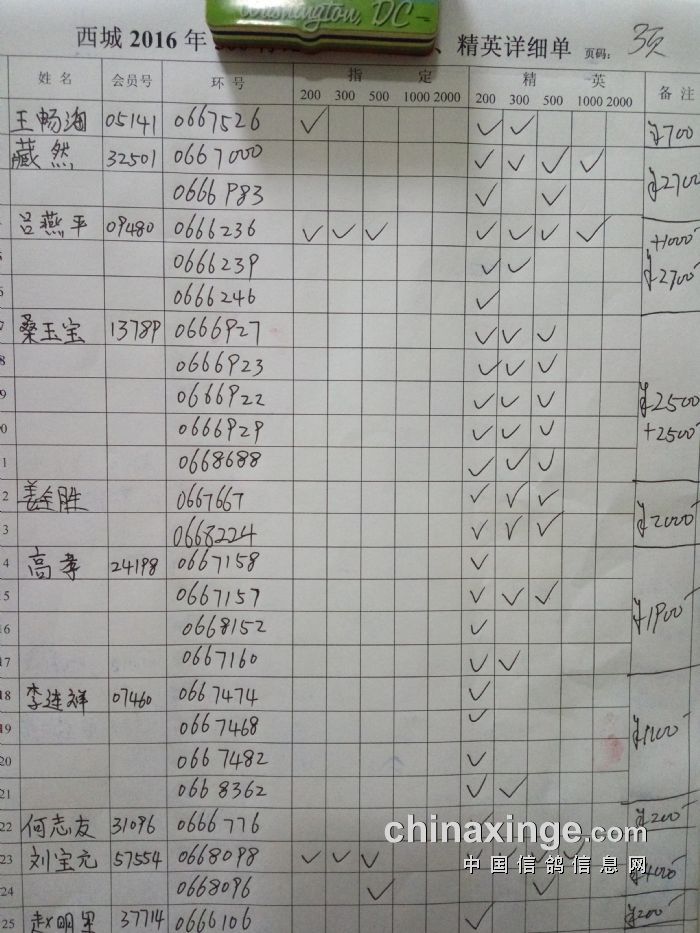 Washington, DC
西城 2016 年 、精英详细单 页码: 3页
姓 名 会员号 环 号 指 定 精 英 备 注
200 300 500 1000 2000 200 300 500 1000 2000
王畅海 05141 0667526 ✓ ✓ ✓ ¥700
臧 然 32501 0667000 ✓ ✓ ✓ ✓
0666983 ✓ ✓ ¥2700
吕燕平 09480 0666236 ✓ ✓ ✓ ✓ ✓ ✓ ✓ +1000
0666239 ✓ ✓ ¥2700
6 0666246 ✓
7 桑玉宝 13789 0666927 ✓ ✓ ✓
8 0666923 ✓ ✓ ✓
9 0666922 ✓ ✓ ✓ ¥2500
0 0666929 ✓ ✓ ✓ +2500
1 0668688 ✓ ✓ ✓
2 姜全胜 0667667 ✓ ✓ ✓
3 0668224 ✓ ✓ ✓ ¥2000
4 高孝 24198 0667158 ✓
15 0667157 ✓ ✓ ✓
16 0668152 ✓ ¥1900
17 0667160 ✓ ✓
18 李连祥 07460 0667474 ✓
19 0667468 ✓ ¥1100
20 0667482 ✓
21 0668362 ✓ ✓
22 何志友 31096 0666776 ✓ ¥200
23 刘宝元 57554 0668098 ✓ ✓ ✓ ✓ ✓ ✓ ✓
24 0668096 ✓ ✓
25 赵明里 37714 0666106 ✓ ¥200
chinaxinge.com
中国信鸽信息网